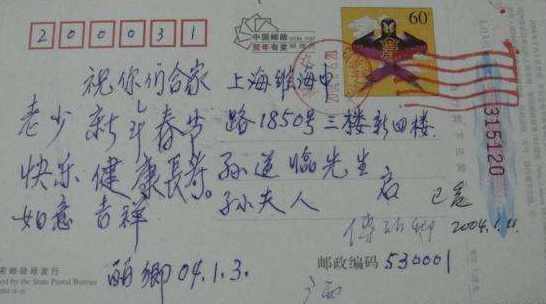 200031
中国邮政
贺年有奖
60
祝你们合家
老少新年春节
快乐健康長寿。
如意吉祥
丽卿04.1.3.
上海淮海中
路1850号三楼新四楼.
孙道临先生
孙夫人
启
已复
2004.1.11
315120
邮政编码 530001
家邮政局发行
ed by the State Postal Bureau